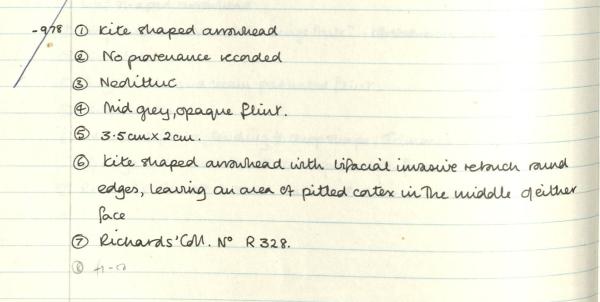 -978 ① Kite shaped arrowhead
② No provenance recorded
③ Neolithic
④ Mid grey, opaque flint.
⑤ 3.5cm x 2cm.
⑥ Kite shaped arrowhead with bifacial invasive retouch round
edges, leaving an area of pitted cortex in the middle of either
face
⑦ Richards' Coll. Nº R 328.
⑧